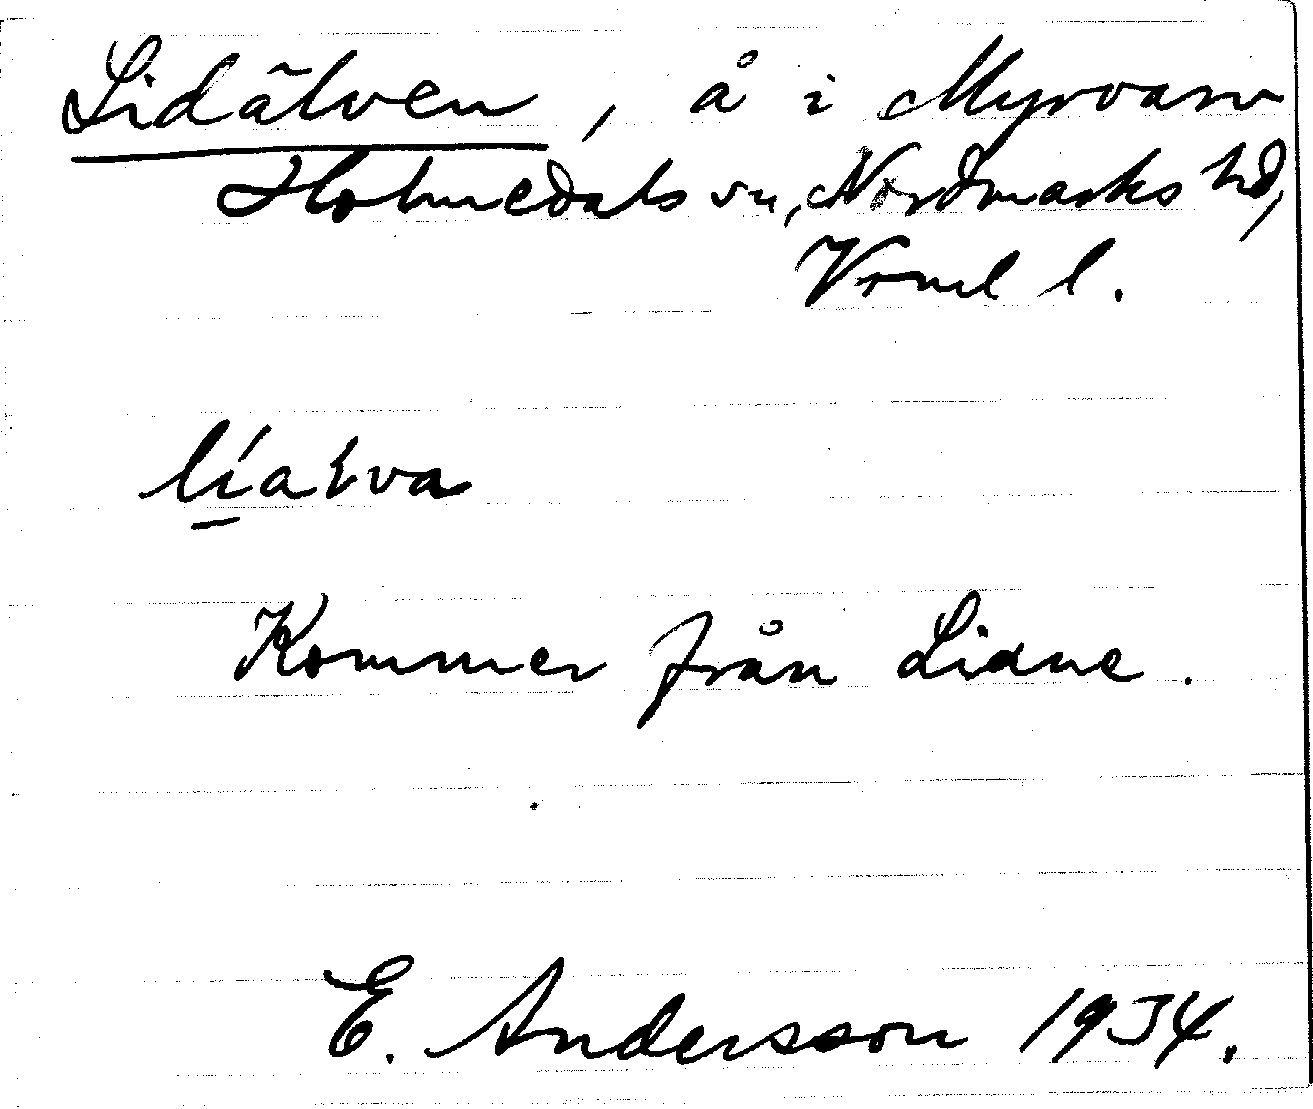 Lidälven, å i Myrvarv
Holmedals sn, Nordmarks hd,
Vrml l.
líaɫva
Kommer från Liane.
E. Andersson 1934.